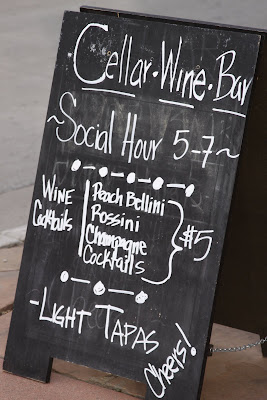 Cellar · Wine · Bar
~Social Hour 5-7~
Wine Cocktails
Peach Bellini
Rossini
Champagne
Cocktails
$5
-Light Tapas
Cheers!